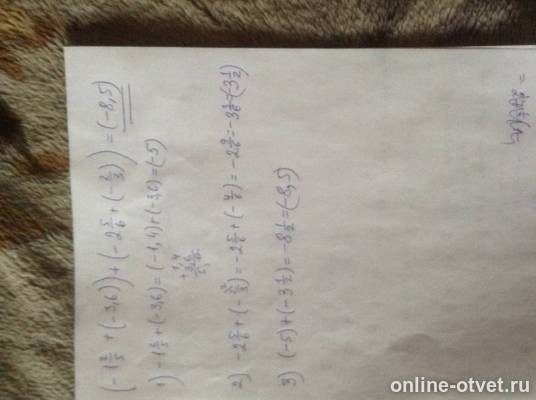 (-1 2/5 + (-3,6)) + (-2 5/6 + (-2/3)) = (-8,5)
1) -1 2/5 + (-3,6) = (-1,4) + (-3,6) = (-5)
+ 1,4
3,6
5,0
2) -2 5/6 + (-2/3) = -2 5/6 + (-4/6) = -2 9/6 = -3 3/6 = (3 1/2)
3) (-5) + (-3 1/2) = -8 1/2 = (-8,5)
online-otvet.ru